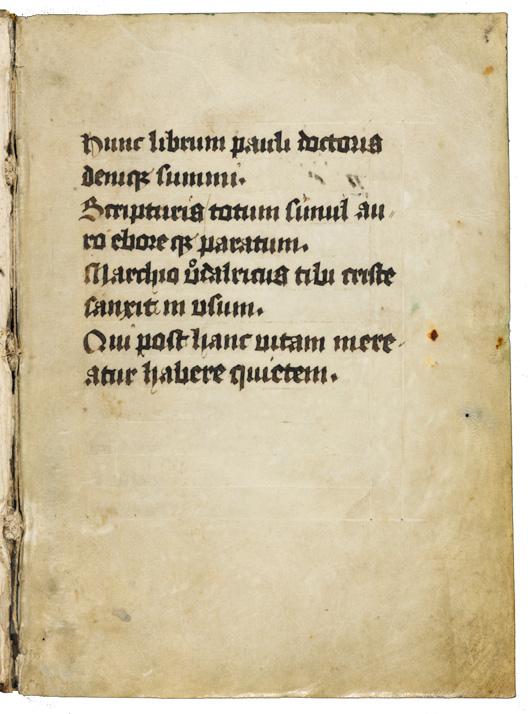 Hunc librum pauli doctoris
deniqꝫ summi.
Scripturis totum simul au-
ro eboreqꝫ paratum.
Marchio vͦdalricus tibi criste
sanxit in vsum.
Qui post hanc uitam mere-
atur habere quietem.